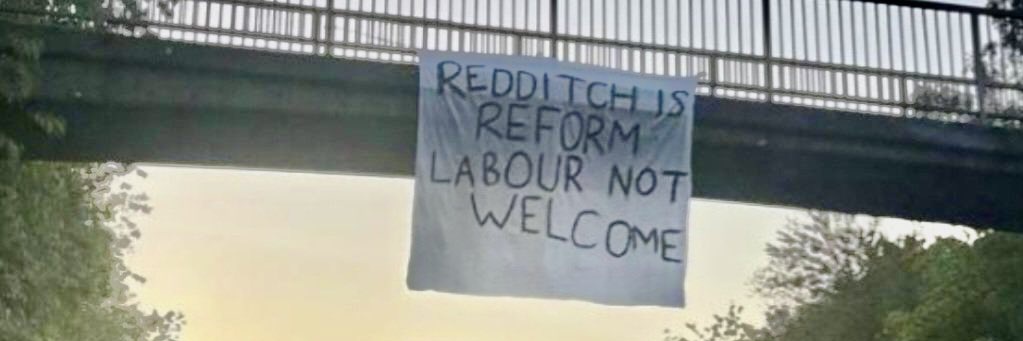 REDDITCH IS
REFORM
LABOUR NOT
WELCOME